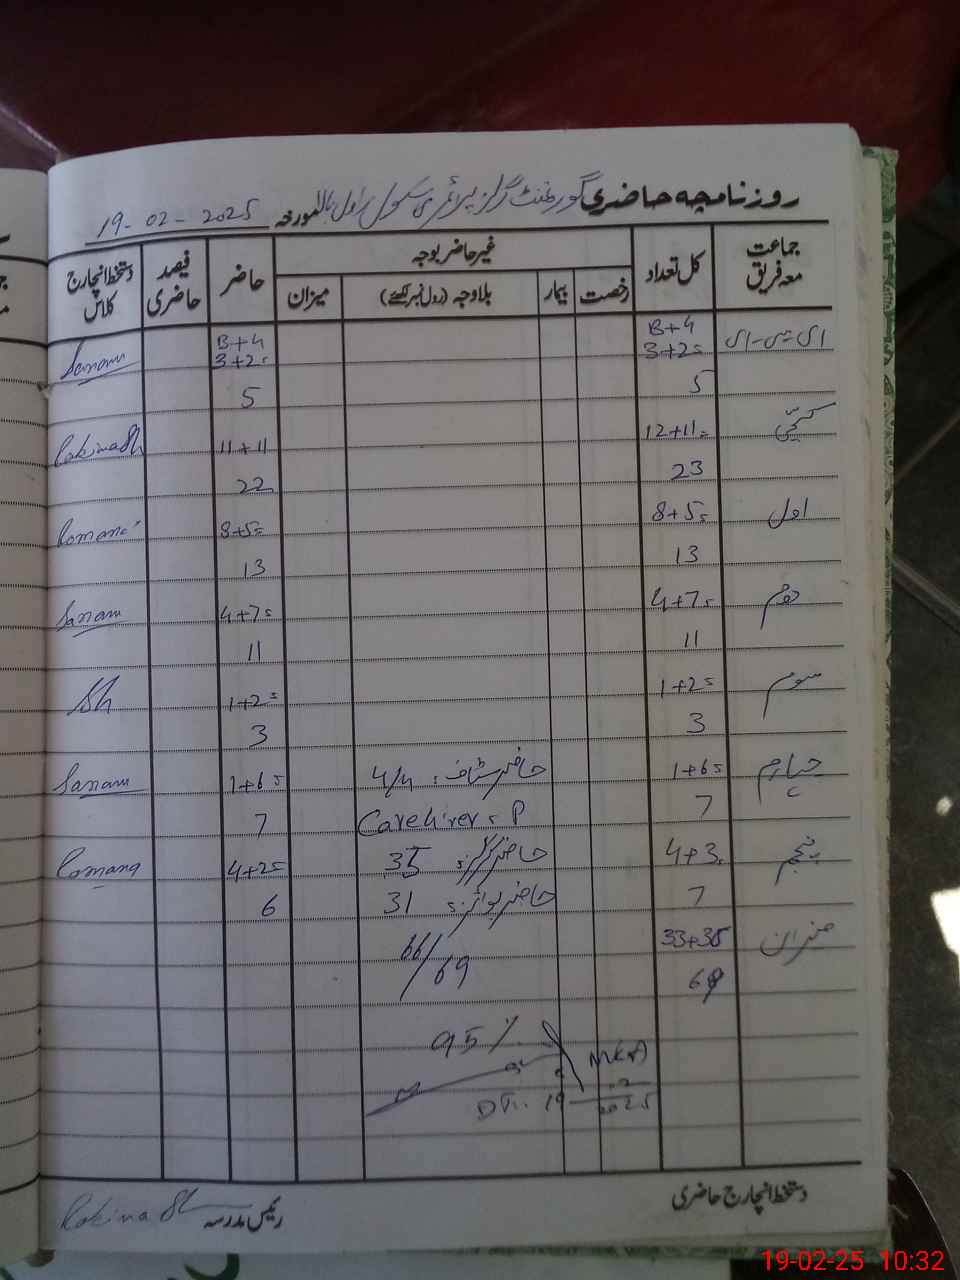 روزنامچہ حاضری گورنمنٹ گرلز پرائمری سکول راول بالا مورخہ 19-02-2025
جماعت معہ فریق کل تعداد غیر حاضر بوجہ حاضر فیصد حاضری دستخط انچارج کلاس
رخصت بیمار بلاوجہ (رول نمبر لکھئے) میزان
ای-سی-ای B+4 B+4 Sanam
3+2= 3+2=
5 5
کچی 12+11= 11+11 Rakina Sh
23 22
اول 8+5= 8+5= Romana
13 13
دوم 4+7= 4+7= Sanam
11 11
سوم 1+2= 1+2= Sh
3 3
چہارم 1+6= حاضر سٹاف: 4/4 1+6= Sanam
7 7
پنجم 4+3= حاضر گرلز: 35 4+2= Romana
7 حاضر بوائز: 31 6
میزان 33+36 66/69
69
95%
DT: 19
2025
دستخط انچارج حاضری رئیس مدرسہ Rakina Sh
19-02-25 10:32